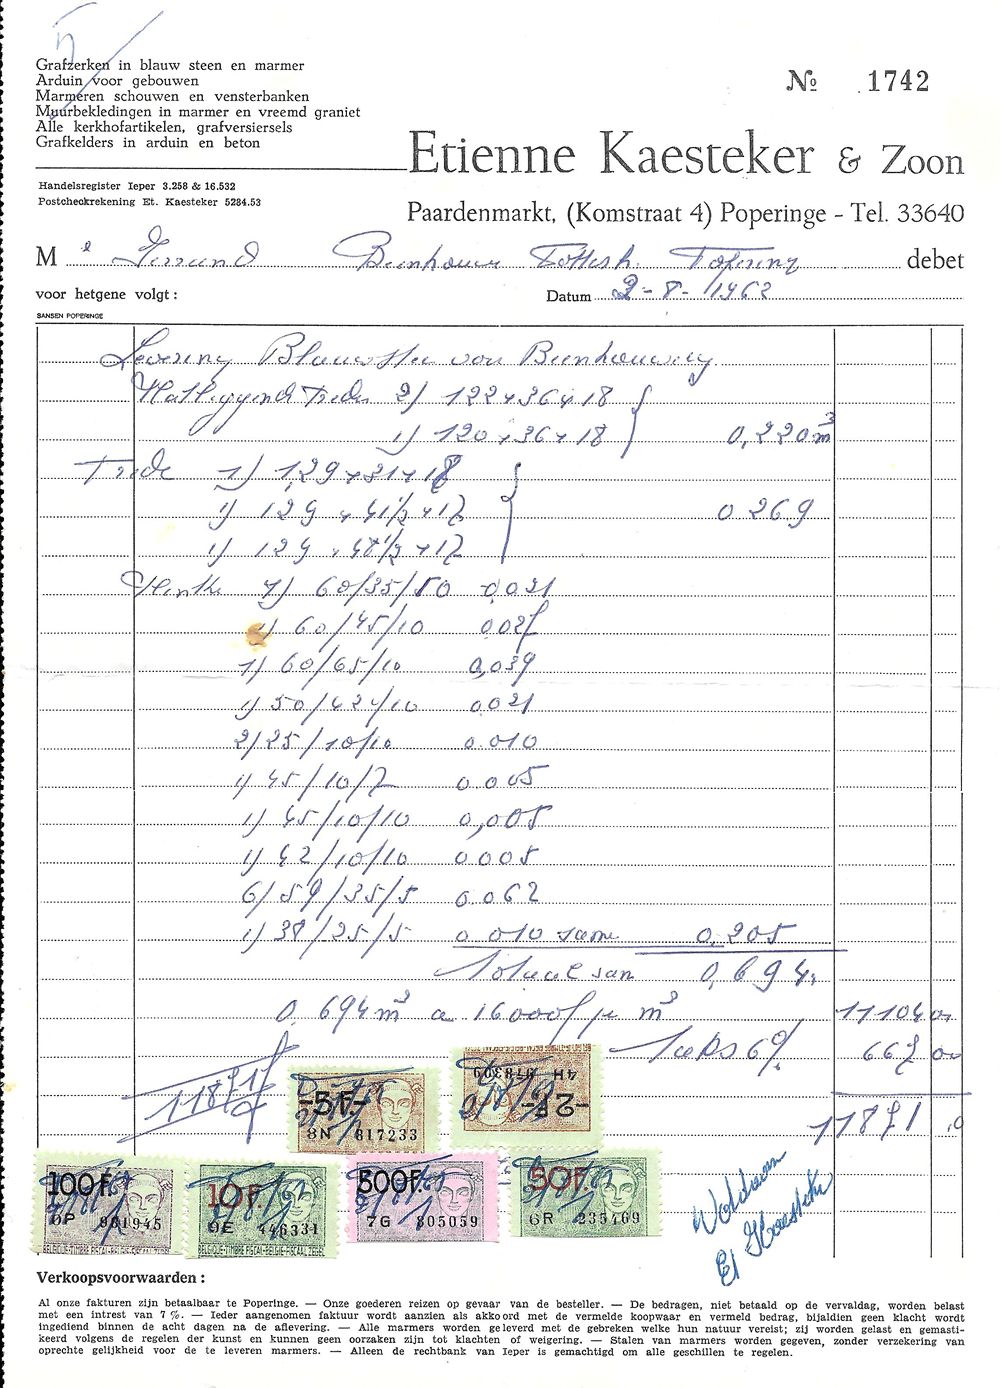 Grafzerken in blauw steen en marmer
Arduin voor gebouwen
Marmeren schouwen en vensterbanken
Muurbekledingen in marmer en vreemd graniet
Alle kerkhofartikelen, grafversiersels
Grafkelders in arduin en beton
№ 1742
Etienne Kaesteker & Zoon
Handelsregister Ieper 3.258 & 16.532
Postcheckrekening Et. Kaesteker 5284.53
Paardenmarkt, (Komstraat 4) Poperinge - Tel. 33640
M debet
voor hetgene volgt :
Datum 2-8-1962
SANSEN POPERINGE
Levering
2) 122 x 36 x 18
1) 120 x 36 x 18 0,220 m³
1) 129 x 31 x 18
1) 129 x 41½ x 17 0 269
1) 129 x 48½ x 17
60/35/10 0.021
1) 60/45/10 0.027
1) 60/65/10 0,039
1) 50/42/10 0.021
2) 25/10/10 0.010
1) 45/10/7 0.005
1) 45/10/10 0,005
1) 42/10/10 0.005
6/ 59/35/5 0.062
1) 38/25/5 0.010 same 0,205
Totaal san 0,694
0,694 m³ a 16000f m³ 11104 00
Taks 6% 667 00
11771
11771 ,0
-5F.- 8N 817233
-2F- 4H 978309
100F. 6P 981945
10F. 9E 446331
500F. 7G 805059
50F. 6R 235769
BELGIQUE-TIMBRE FISCAL-BELGIË-FISCAAL ZEGEL
Voldaan
Et Kaesteker
Verkoopsvoorwaarden :
Al onze fakturen zijn betaalbaar te Poperinge. — Onze goederen reizen op gevaar van de besteller. — De bedragen, niet betaald op de vervaldag, worden belast
met een intrest van 7 %. — Ieder aangenomen faktuur wordt aanzien als akkoord met de vermelde koopwaar en vermeld bedrag, bijaldien geen klacht wordt
ingediend binnen de acht dagen na de aflevering. — Alle marmers worden geleverd met de gebreken welke hun natuur vereist; zij worden gelast en gemasti-
keerd volgens de regelen der kunst en kunnen geen oorzaken zijn tot klachten of weigering. — Stalen van marmers worden gegeven, zonder verzekering van
oprechte gelijkheid voor de te leveren marmers. — Alleen de rechtbank van Ieper is gemachtigd om alle geschillen te regelen.